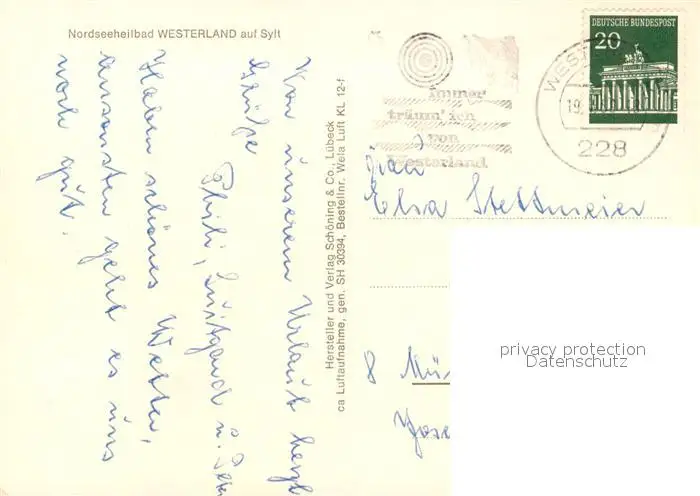 Nordseeheilbad WESTERLAND auf Sylt
Von unserem Urlaub herzl
Grüße
Luitgard u. Peter
Haben schönes Wetter,
ansonsten geht es uns
noch gut.
Hersteller und Verlag Schöning & Co., Lübeck
ca Luftaufnahme, gen. SH 30394, Bestellnr. Wela Luft KL 12-f
immer
träum' ich
von
Westerland
WEST
19.
228
DEUTSCHE BUNDESPOST
20
Frau
Elsa Stettmeier
8 Mün
Jose
privacy protection
Datenschutz